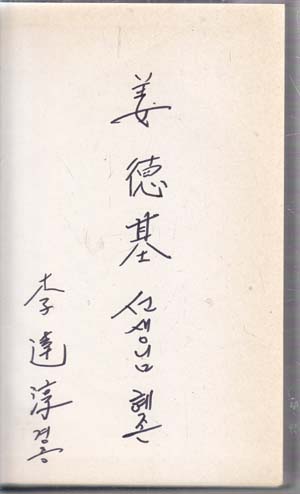 姜德基 선생님 혜존
李達淳 경송